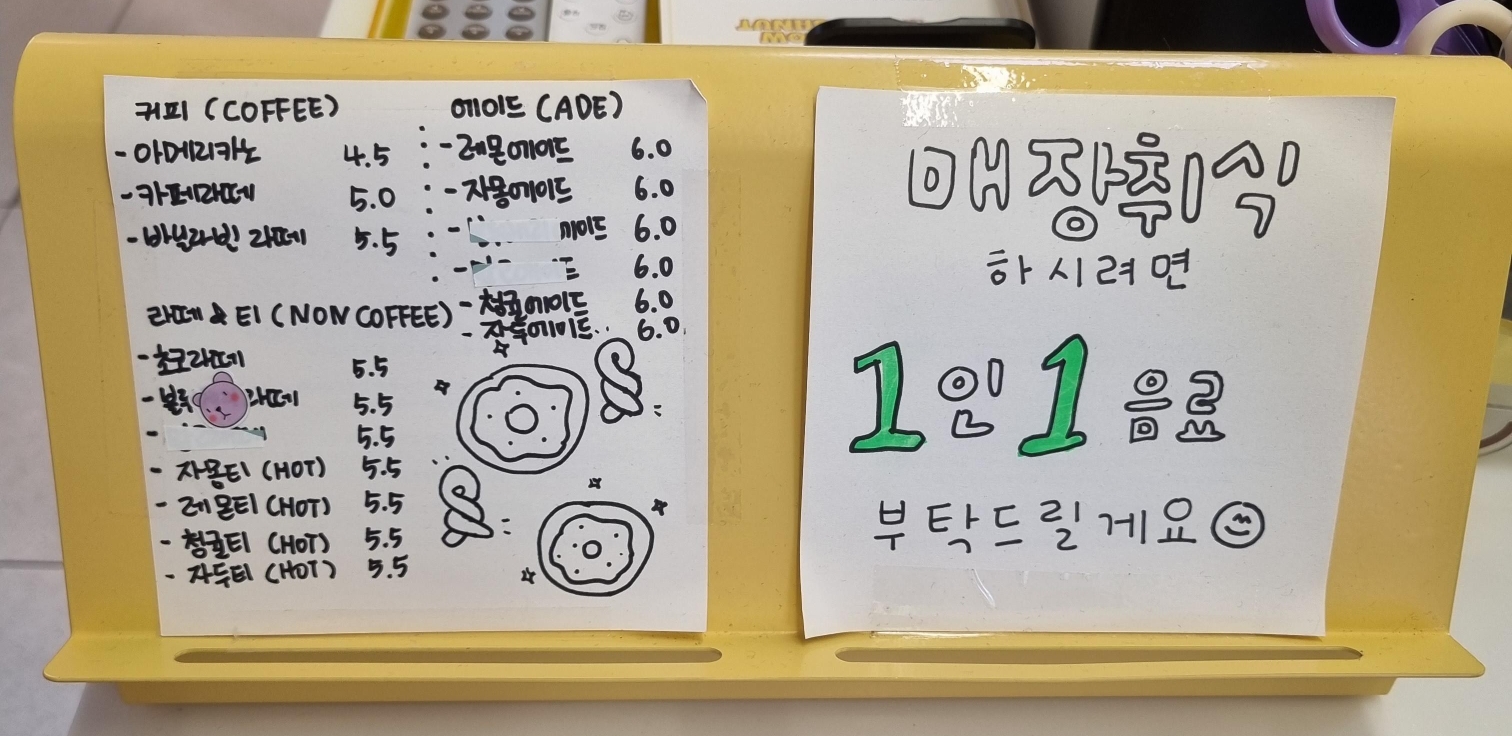 커피 (COFFEE)
- 아메리카노 4.5
- 카페라떼 5.0
- 바닐라빈 라떼 5.5
라떼 & 티 (NON COFFEE)
- 초코라떼 5.5
- 블루 라떼 5.5
- 5.5
- 자몽티 (HOT) 5.5
- 레몬티 (HOT) 5.5
- 청귤티 (HOT) 5.5
- 자두티 (HOT) 5.5
에이드 (ADE)
- 레몬에이드 6.0
- 자몽에이드 6.0
- 에이드 6.0
- 6.0
- 청귤에이드 6.0
- 자두에이드 6.0
매장취식
하시려면
1인 1 음료
부탁드릴게요